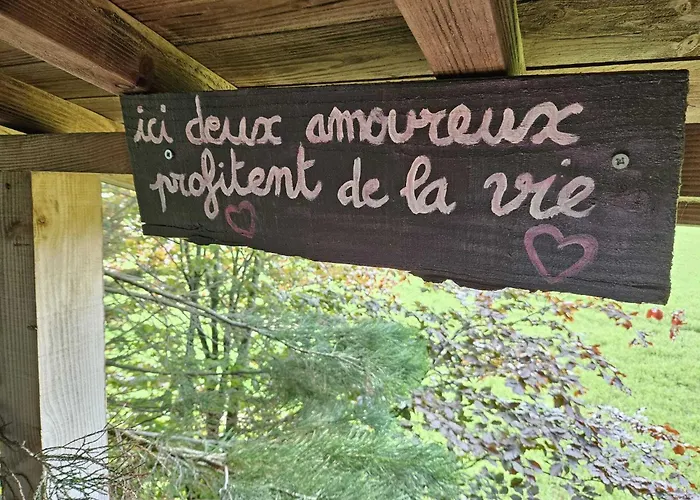 ici deux amoureux
profitent de la vie